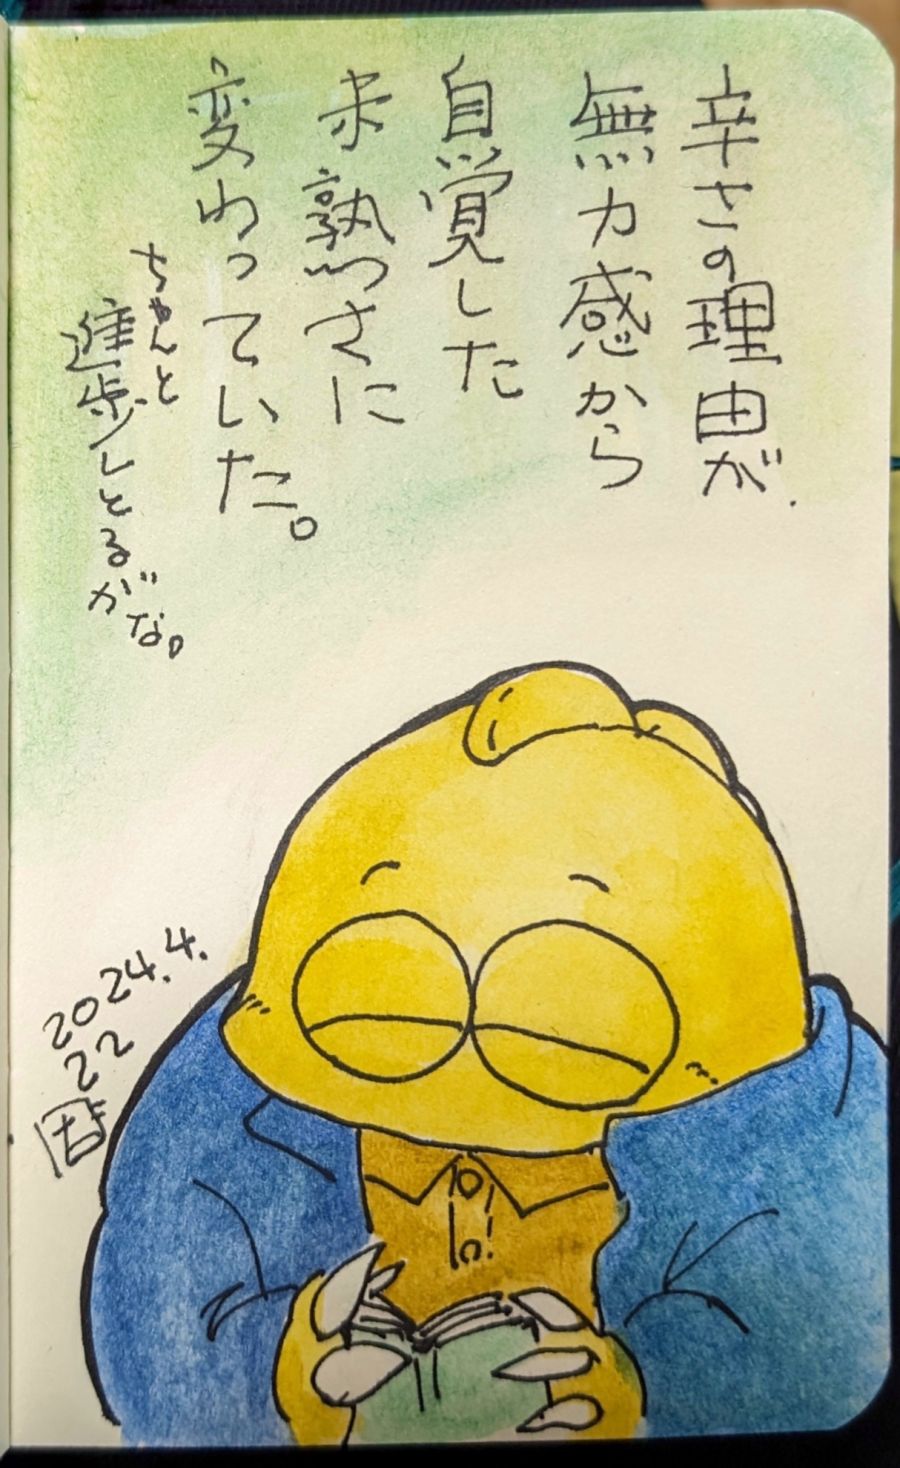 辛さの理由が
無力感から
自覚した
未熟さに
変わっていた。
ちゃんと
進歩しとるがな。
2024.4.
22